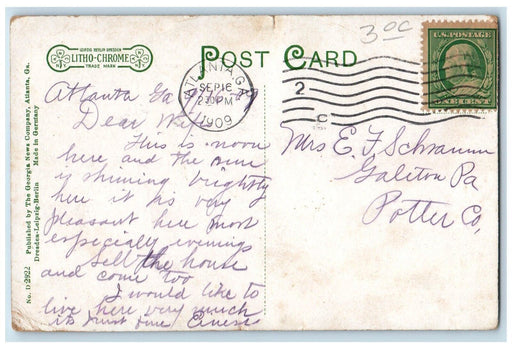 30c
LEIPZIG BERLIN DRESDEN
LITHO-CHROME
TRADE MARK
POST CARD
U.S. POSTAGE
ONE CENT
ATLANTA, GA.
SEP 16
2 PM
1909
2
Atlanta Ga
Dear Wife
This is noon
here and the sun
is shining brightly
here it is very
pleasant here most
especially evenings
Sell the house
and come too
I would like to
live here very much
its just fine
Mrs E. F. Schramm
Galeton Pa
Potter Co,
No. D 2922
Published by The Georgia News Company, Atlanta, Ga.
Dresden-Leipzig-Berlin Made in Germany